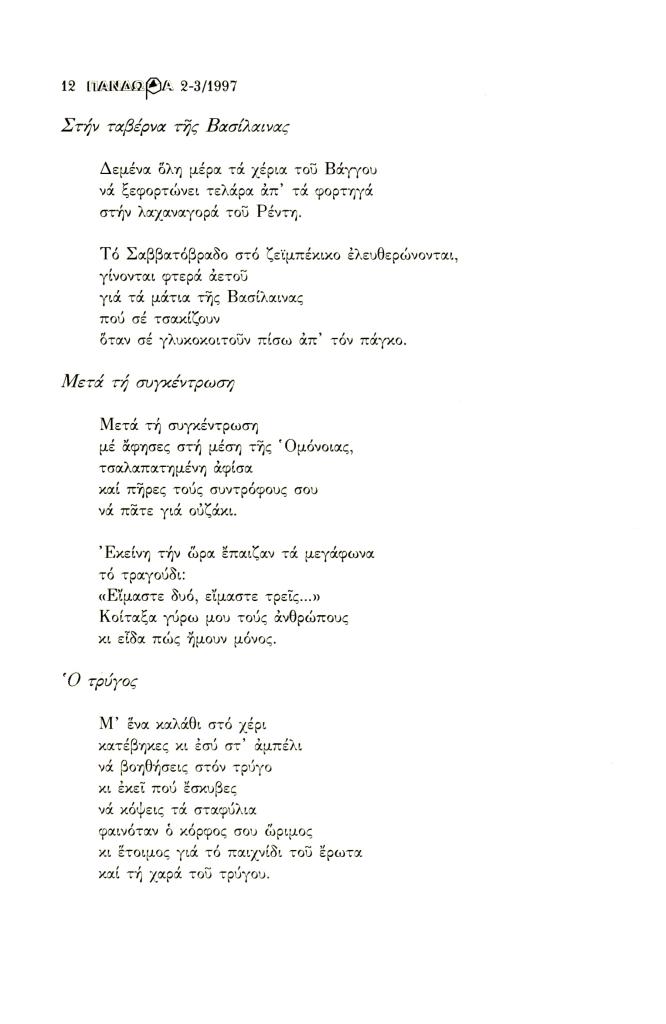 12 ΠΑΝΔΩΡΑ 2-3/1997
Στήν ταβέρνα τῆς Βασίλαινας
Δεμένα ὅλη μέρα τά χέρια τοῦ Βάγγου
νά ξεφορτώνει τελάρα ἀπ’ τά φορτηγά
στήν λαχαναγορά τοῦ Ρέντη.
Τό Σαββατόβραδο στό ζεϊμπέκικο ἐλευθερώνονται,
γίνονται φτερά ἀετοῦ
γιά τά μάτια τῆς Βασίλαινας
πού σέ τσακίζουν
ὅταν σέ γλυκοκοιτοῦν πίσω ἀπ’ τόν πάγκο.
Μετά τή συγκέντρωση
Μετά τή συγκέντρωση
μέ ἄφησες στή μέση τῆς Ὁμόνοιας,
τσαλαπατημένη ἀφίσα
καί πῆρες τούς συντρόφους σου
νά πᾶτε γιά οὐζάκι.
Ἐκείνη τήν ὥρα ἔπαιζαν τά μεγάφωνα
τό τραγούδι:
«Εἴμαστε δυό, εἴμαστε τρεῖς...»
Κοίταξα γύρω μου τούς ἀνθρώπους
κι εἶδα πώς ἤμουν μόνος.
Ὁ τρύγος
Μ’ ἕνα καλάθι στό χέρι
κατέβηκες κι ἐσύ στ’ ἀμπέλι
νά βοηθήσεις στόν τρύγο
κι ἐκεῖ πού ἔσκυβες
νά κόψεις τά σταφύλια
φαινόταν ὁ κόρφος σου ὥριμος
κι ἕτοιμος γιά τό παιχνίδι τοῦ ἔρωτα
καί τή χαρά τοῦ τρύγου.